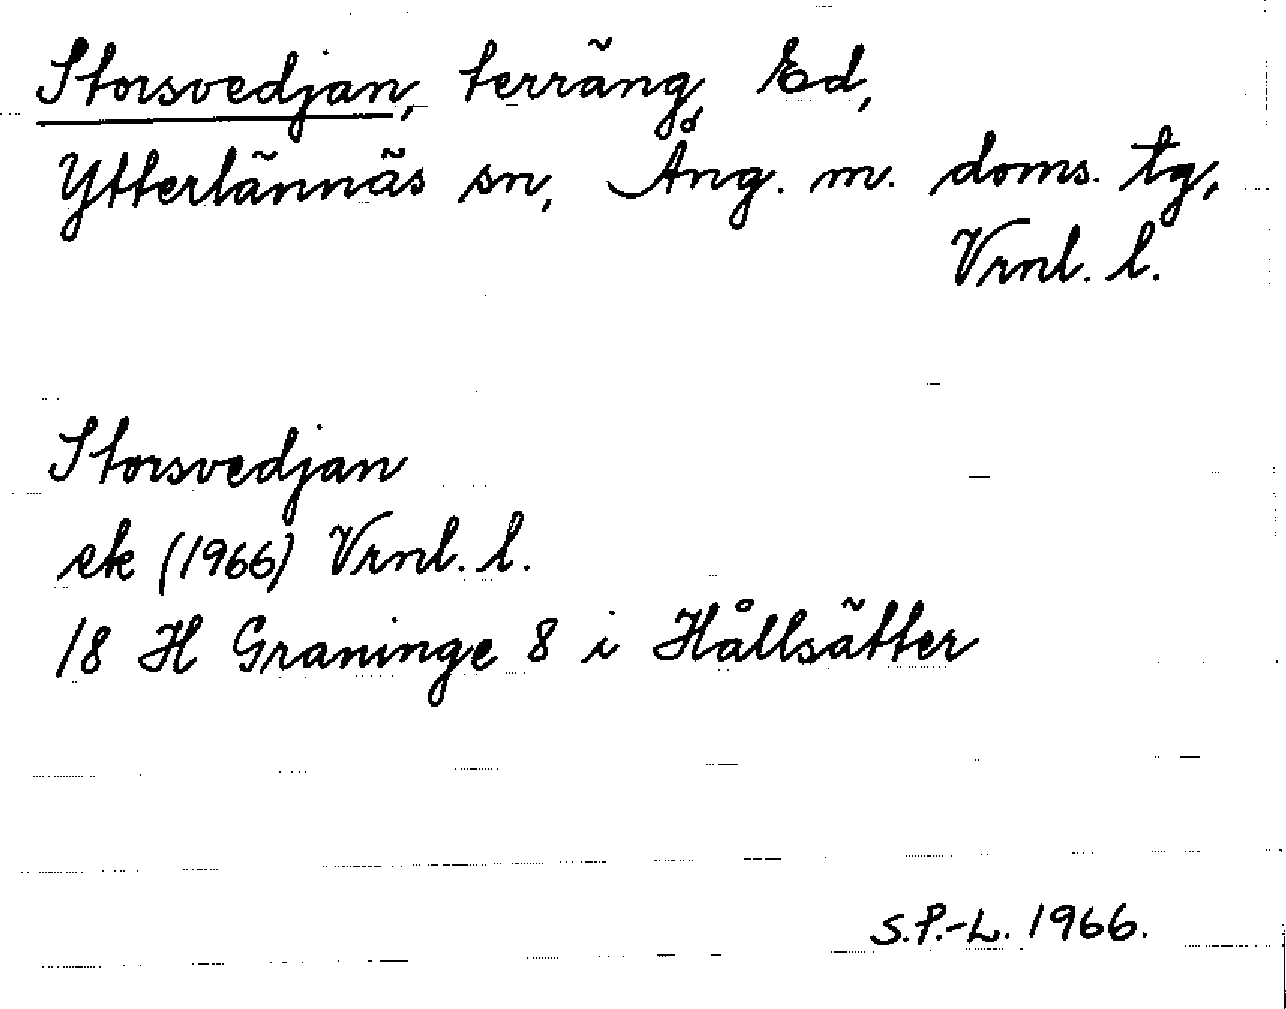 Storsvedjan, terräng, Ed,
Ytterlännäs sn, Ång. m. doms. tg,
Vrnl. l.
Storsvedjan
ek (1966) Vrnl. l.
18 H Graninge 8 i Hållsätter
S.P.-L. 1966.